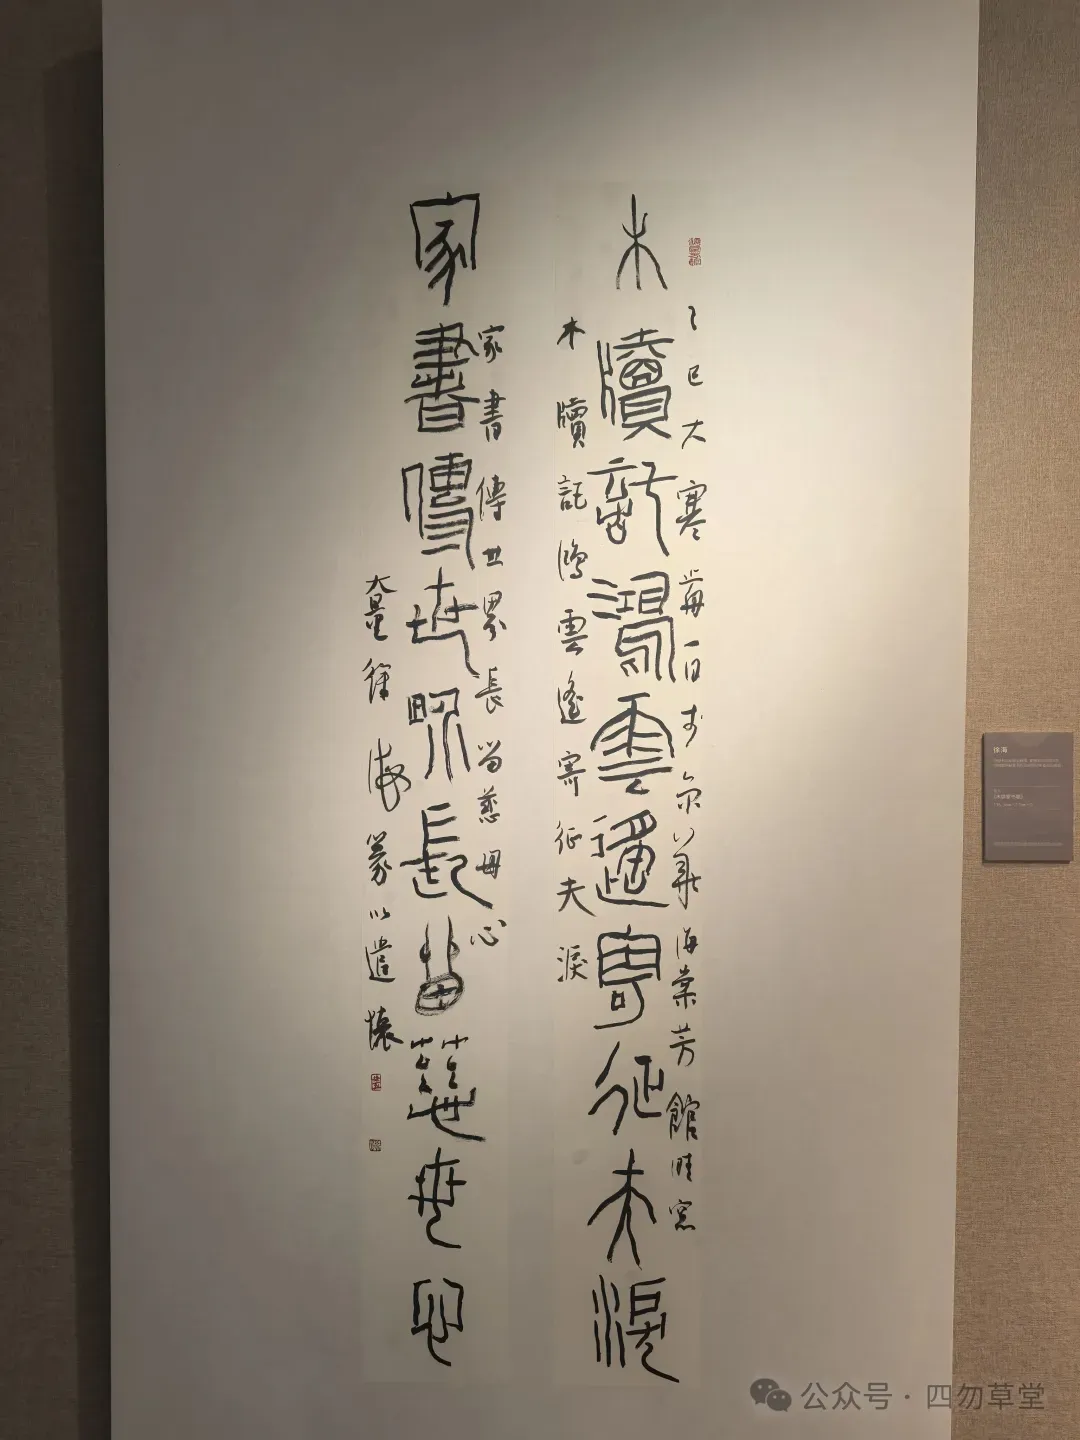 木牘託鴻雲遙寄征夫淚
乙巳大寒前一日於京華海棠芳館晴窗
木牘託鴻雲遙寄征夫淚
家書傳世界長留慈母心
家書傳世界長留慈母心
徐海篆以遣懷
徐海
公众号·四勿草堂